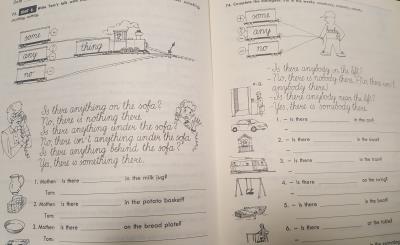 some
any
thing
no
Is there anything on the sofa?
No, there is nothing there.
Is there anything under the sofa?
No, there isn't anything under the sofa.
Is there anything behind the sofa?
Yes, there is something there.
1. Mother: Is there in the milk jug?
Tom:
2. Mother: Is there in the potato basket?
Tom:
3. Mother: Is there on the bread plate?
Tom:
some
any
body
no
- Is there anybody in the lift?
- No, there is nobody there.
anybody there.)
- Is there anybody near the lift?
- Yes, there is somebody there.
1. – Is there in the car?
–
2. – Is there in the
–
3. – Is there in the
–
4. – Is there on the swing?
–
5. – Is there in the boat?
–
6. – Is there at the table?